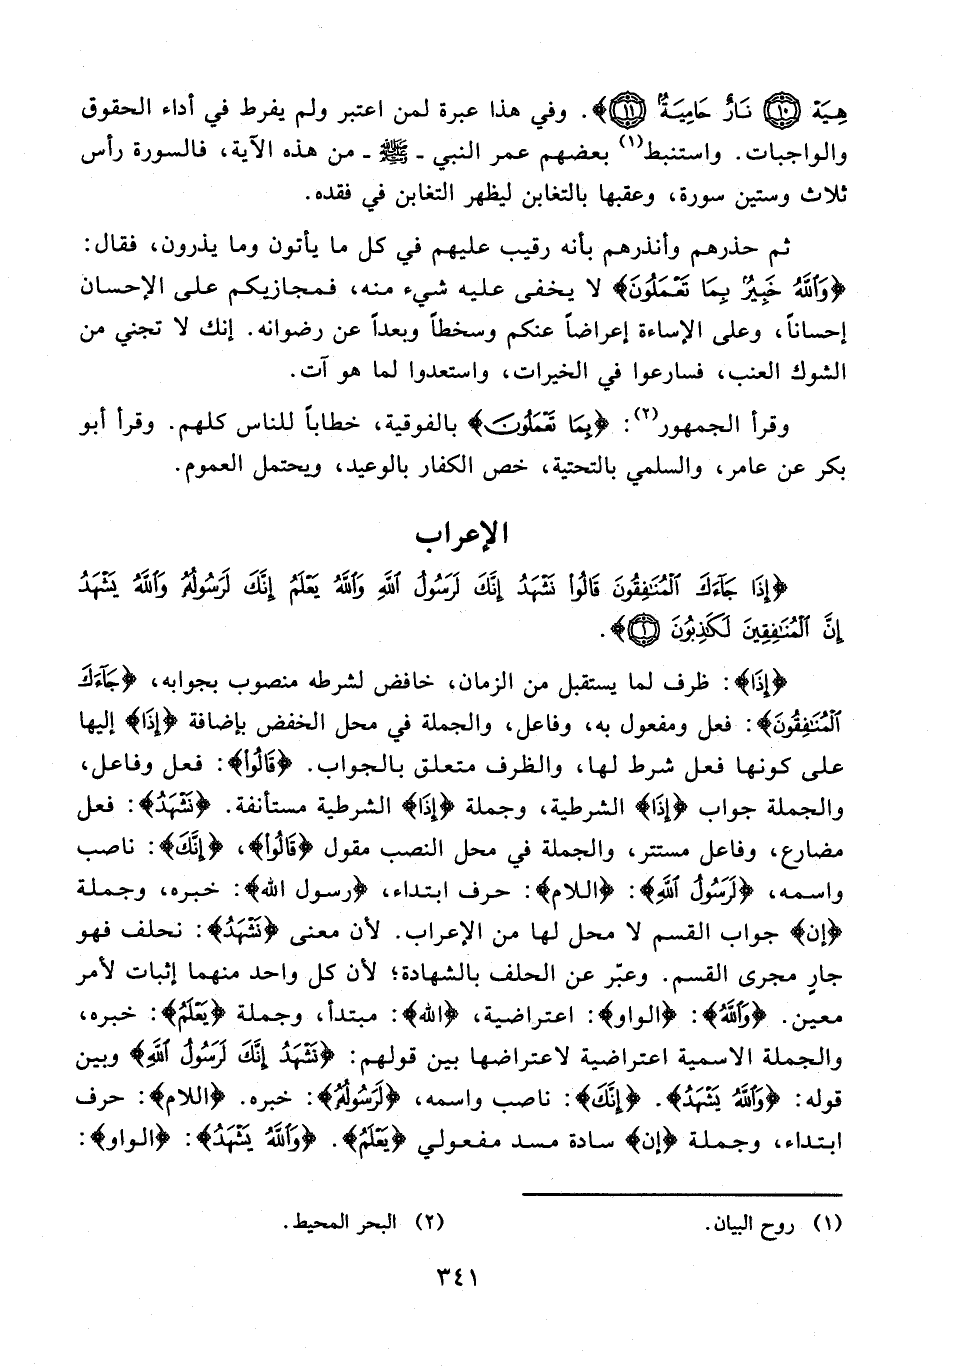 هِيَهْ ١٠ نَارٌ حَامِيَةٌ ١١﴾. وفي هذا عبرة لمن اعتبر ولم يفرط في أداء الحقوق
والواجبات. واستنبط(١) بعضهم عمر النبي ـ ﷺ ـ من هذه الآية، فالسورة رأس
ثلاث وستين سورة، وعقبها بالتغابن ليظهر التغابن في فقده.
ثم حذرهم وأنذرهم بأنه رقيب عليهم في كل ما يأتون وما يذرون، فقال:
﴿وَٱللَّهُ خَبِيرٌ بِمَا تَعْمَلُونَ﴾ لا يخفى عليه شيء منه، فمجازيكم على الإحسان
إحساناً، وعلى الإساءة إعراضاً عنكم وسخطاً وبعداً عن رضوانه. إنك لا تجني من
الشوك العنب، فسارعوا في الخيرات، واستعدوا لما هو آت.
وقرأ الجمهور(٢): ﴿بِمَا تَعْمَلُونَ﴾ بالفوقية، خطاباً للناس كلهم. وقرأ أبو
بكر عن عامر، والسلمي بالتحتية، خص الكفار بالوعيد، ويحتمل العموم.
الإعراب
﴿إِذَا جَآءَكَ ٱلْمُنَٰفِقُونَ قَالُوا۟ نَشْهَدُ إِنَّكَ لَرَسُولُ ٱللَّهِ وَٱللَّهُ يَعْلَمُ إِنَّكَ لَرَسُولُهُۥ وَٱللَّهُ يَشْهَدُ
إِنَّ ٱلْمُنَٰفِقِينَ لَكَٰذِبُونَ ١﴾.
﴿إِذَا﴾: ظرف لما يستقبل من الزمان، خافض لشرطه منصوب بجوابه، ﴿جَآءَكَ
ٱلْمُنَٰفِقُونَ﴾: فعل ومفعول به، وفاعل، والجملة في محل الخفض بإضافة ﴿إِذَا﴾ إليها
على كونها فعل شرط لها، والظرف متعلق بالجواب. ﴿قَالُوا۟﴾: فعل وفاعل،
والجملة جواب ﴿إِذَا﴾ الشرطية، وجملة ﴿إِذَا﴾ الشرطية مستأنفة. ﴿نَشْهَدُ﴾: فعل
مضارع، وفاعل مستتر، والجملة في محل النصب مقول ﴿قَالُوا۟﴾، ﴿إِنَّكَ﴾: ناصب
واسمه، ﴿لَرَسُولُ ٱللَّهِ﴾: ﴿اللام﴾: حرف ابتداء، ﴿رسول الله﴾: خبره، وجملة
﴿إن﴾ جواب القسم لا محل لها من الإعراب. لأن معنى ﴿نَشْهَدُ﴾: نحلف فهو
جارٍ مجرى القسم. وعبّر عن الحلف بالشهادة؛ لأن كل واحد منهما إثبات لأمر
معين. ﴿وَٱللَّهُ﴾: ﴿الواو﴾: اعتراضية، ﴿الله﴾: مبتدأ، وجملة ﴿يَعْلَمُ﴾: خبره،
والجملة الاسمية اعتراضية لاعتراضها بين قولهم: ﴿نَشْهَدُ إِنَّكَ لَرَسُولُ ٱللَّهِ﴾ وبين
قوله: ﴿وَٱللَّهُ يَشْهَدُ﴾. ﴿إِنَّكَ﴾: ناصب واسمه، ﴿لَرَسُولُهُۥ﴾: خبره. ﴿اللام﴾: حرف
ابتداء، وجملة ﴿إن﴾ سادة مسد مفعولي ﴿يَعْلَمُ﴾. ﴿وَٱللَّهُ يَشْهَدُ﴾: ﴿الواو﴾:
(١) روح البيان. (٢) البحر المحيط.
٣٤١